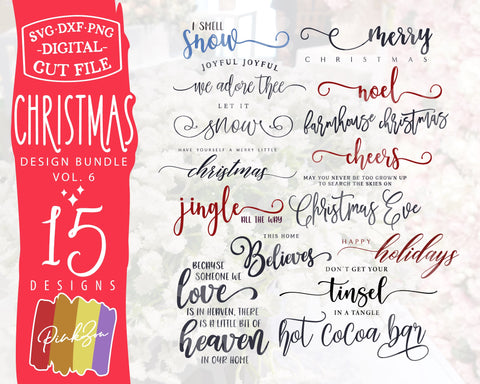 SVG·DXF·PNG
-DIGITAL-
CUT FILE
CHRISTMAS
DESIGN BUNDLE
VOL. 6
15
DESIGNS
PinkZou
I SMELL
Snow
JOYFUL JOYFUL
we adore thee
LET IT
snow
HAVE YOURSELF A MERRY LITTLE
christmas
jingle
ALL THE WAY
THIS HOME
Believes
BECAUSE
SOMEONE WE
love
IS IN HEAVEN, THERE
IS A LITTLE BIT OF
heaven
IN OUR HOME
merry
CHRISTMAS
noel
farmhouse christmas
cheers
MAY YOU NEVER BE TOO GROWN UP
TO SEARCH THE SKIES ON
Christmas Eve
HAPPY
holidays
DON'T GET YOUR
Tinsel
IN A TANGLE
hot cocoa bar